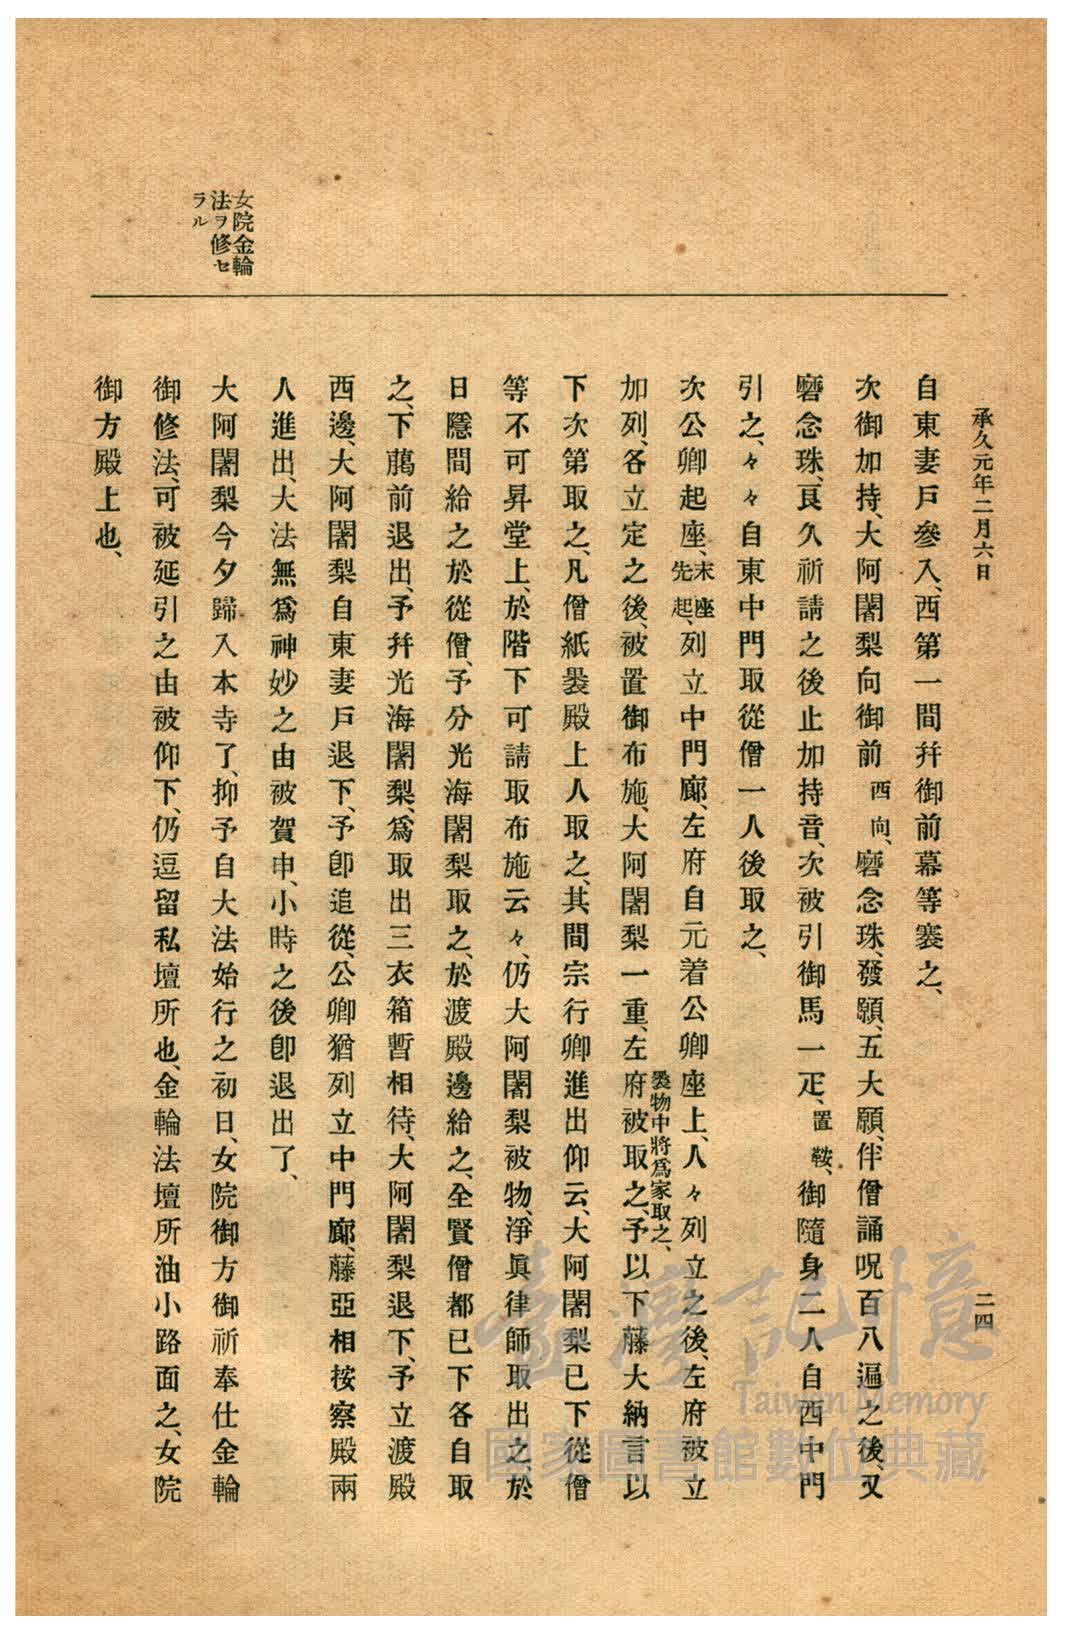 承久元年二月六日
二四
女院金輪
法ヲ修セ
ラル
自東妻戸參入、西第一間幷御前幕等褰之、
次御加持、大阿闍梨向御前西向、磨念珠、發願、五大願、伴僧誦呪百八遍之後、又
磨念珠、良久祈請之後止加持音、次被引御馬一疋、置鞍、御隨身二人自西中門
引之、々々自東中門取從僧一人後取之、
次公卿起座、末座先起、列立中門廊、左府自元着公卿座上、人々列立之後、左府被立
加列、各立定之後、被置御布施、大阿闍梨一重、左府被取之、裹物中將爲家取之、予以下藤大納言以
下次第取之、凡僧紙裹殿上人取之、其間宗行卿進出仰云、大阿闍梨已下從僧
等不可昇堂上、於階下可請取布施云々、仍大阿闍梨被物、淨眞律師取出之、於
日隱間給之於從僧、予分光海闍梨取之、於渡殿邊給之、全賢僧都已下各自取
之、下﨟前退出、予幷光海闍梨、爲取出三衣箱暫相待、大阿闍梨退下、予立渡殿
西邊、大阿闍梨自東妻戸退下、予卽追從、公卿猶列立中門廊、藤亞相按察殿兩
人進出、大法無爲神妙之由被賀申、小時之後卽退出了、
大阿闍梨今夕歸入本寺了、抑予自大法始行之初日、女院御方御祈奉仕金輪
御修法、可被延引之由被仰下、仍逗留私壇所也、金輪法壇所油小路面之、女院
御方殿上也、
臺灣記憶
Taiwan Memory
國家圖書館數位典藏